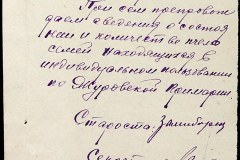 При сем препровож
даем сведения о состоя
нии и количестве пчело
семей находящихся в
индивидуальном пользовании
по Журовской Коммарии
Староста
Секрет